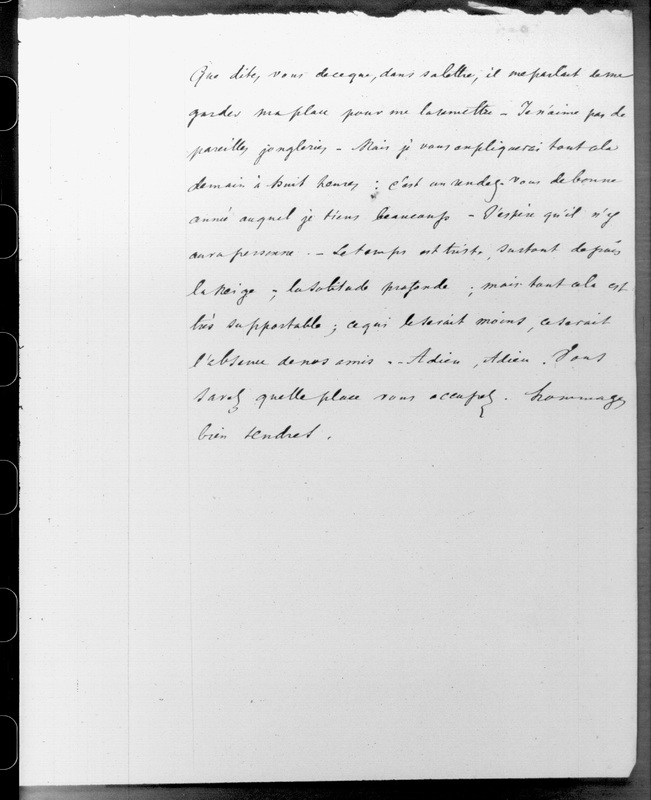 Que dites vous de ce que, dans sa lettre, il me parlait de me
garder ma place pour me la remettre – Je n'aime pas de
pareilles jongleries – Mais je vous expliquerai tout cela
demain à huit heures : c'est un rendez-vous de bonne
année auquel je tiens beaucoup – J'espère qu'il n'y
aura personne. – Le temps est triste, surtout depuis
la neige ; la solitude profonde ; mais tout cela est
très supportable ; ce qui le serait moins, ce serait
l'absence de nos amis. – Adieu, Adieu. Vous
savez quelle place vous occupez. hommages
bien tendres.